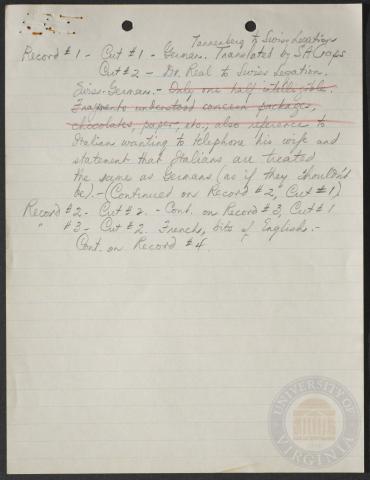 Tannenberg to Swiss Legation
Record #1 - Cut #1 - German. Translated by SA
Cut #2 - Dr. Real to Swiss Legation.
Swiss-German. - Only one half intelligible.
Fragments understood concern packages,
chocolates, paper, etc., also reference to
Italian wanting to telephone his wife and
statement that Italians are treated
the same as Germans (as if they shouldn't
be). - (Continued on Record #2, Cut #1)
Record #2 - Cut #2. - Cont. on Record #3, Cut #1
" #3 - Cut #2. French, bits of English. -
Cont. on Record #4.
UNIVERSITY OF VIRGINIA